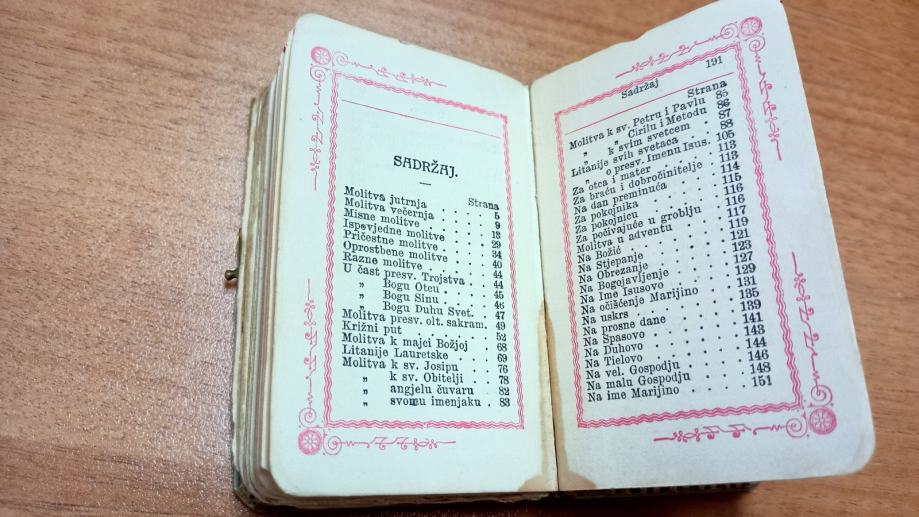 SADRŽAJ.
Strana
Molitva jutrnja . . . 5
Molitva večernja . . . . 9
Misne molitve . . . . 13
Ispovjedne molitve . . . 29
Pričestne molitve . . . . 34
Oprostbene molitve . . . 40
Razne molitve . . . . . 44
U čast presv. Trojstva . . 44
„ Bogu Otcu . . . 45
„ Bogu Sinu . . . 46
„ Bogu Duhu Svet. . . 47
Molitva presv. olt. sakram. 49
Križni put . . . . . 52
Molitva k majci Božjoj . . 68
Litanije Lauretske . . . 69
Molitva k sv. Josipu . . 76
„ k sv. Obitelji . . 78
„ angjelu čuvaru . 82
„ svomu imenjaku . 83
Sadržaj 191
Strana
Molitva k sv. Petru i Pavlu 85
„ „ Cirilu i Metodu 86
„ k svim svetcem . . 87
Litanije svih svetaca . . 88
„ o presv. Imenu Isus. 105
Za otca i mater . . . . 113
Za braću i dobročinitelje . 113
Na dan preminuća . . . 114
Za pokojnika . . . . . 115
Za pokojnicu . . . . . 116
Za počivajuće u groblju . 116
Molitva u adventu . . . 117
Na Božić . . . . . . 119
Na Stjepanje . . . . . 121
Na Obrezanje . . . . . 123
Na Bogojavljenje . . . . 127
Na Ime Isusovo . . . . 129
Na očišćenje Marijino . . 131
Na uskrs . . . . . . 135
Na prosne dane . . . . 139
Na Spasovo . . . . . 141
Na Duhovo . . . . . 143
Na Tielovo . . . . . 144
Na vel. Gospodju . . . . 146
Na malu Gospodju . . . 148
Na ime Marijino . . . . 151